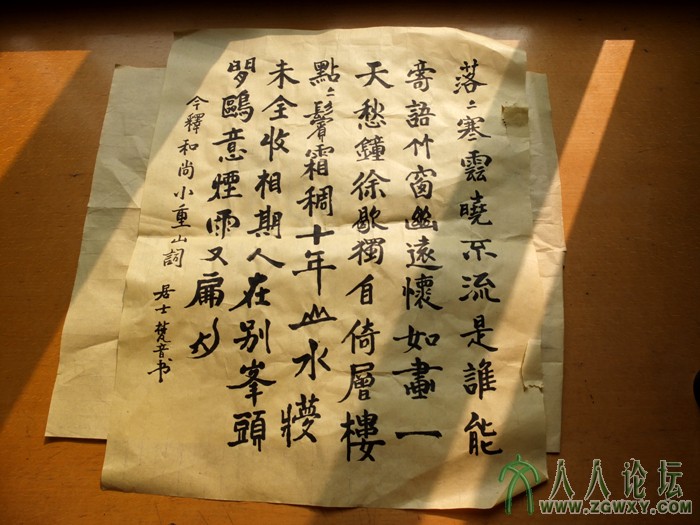 落〻寒雲曉不流是誰能
寄語竹窗幽遠懷如畫一
天愁鐘徐歇獨自倚層樓
點〻鬢霜稠十年山水
未全收相期人在别峯頭
閒鷗意煙雨又扁舟
今釋和尚小重山詞 居士梵音书
人人论坛
WWW.ZGWXY.COM